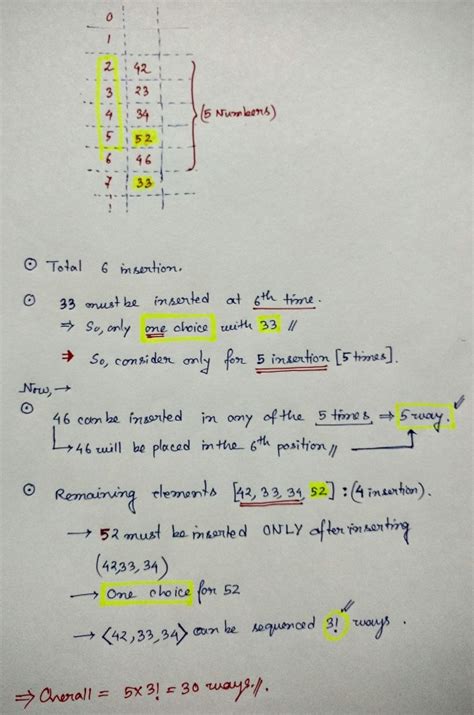 0
1
2 42
3 23
4 34 (5 Numbers)
5 52
6 46
7 33
⊙ Total 6 insertion.
⊙ 33 must be inserted at 6th time.
⇒ So, only one choice with 33 //
⇒ So, consider only for 5 insertion [5 times].
Now, →
⊙ 46 can be inserted in any of the 5 times ⇒ 5 way.
↳ 46 will be placed in the 6th position //
⊙ Remaining elements [42, 33, 34, 52] : (4 insertion).
→ 52 must be inserted ONLY after inserting
(42,33, 34)
→ One choice for 52
→ (42, 33, 34) can be sequenced 3! ways.
⇒ Overall = 5 x 3! = 30 ways //.